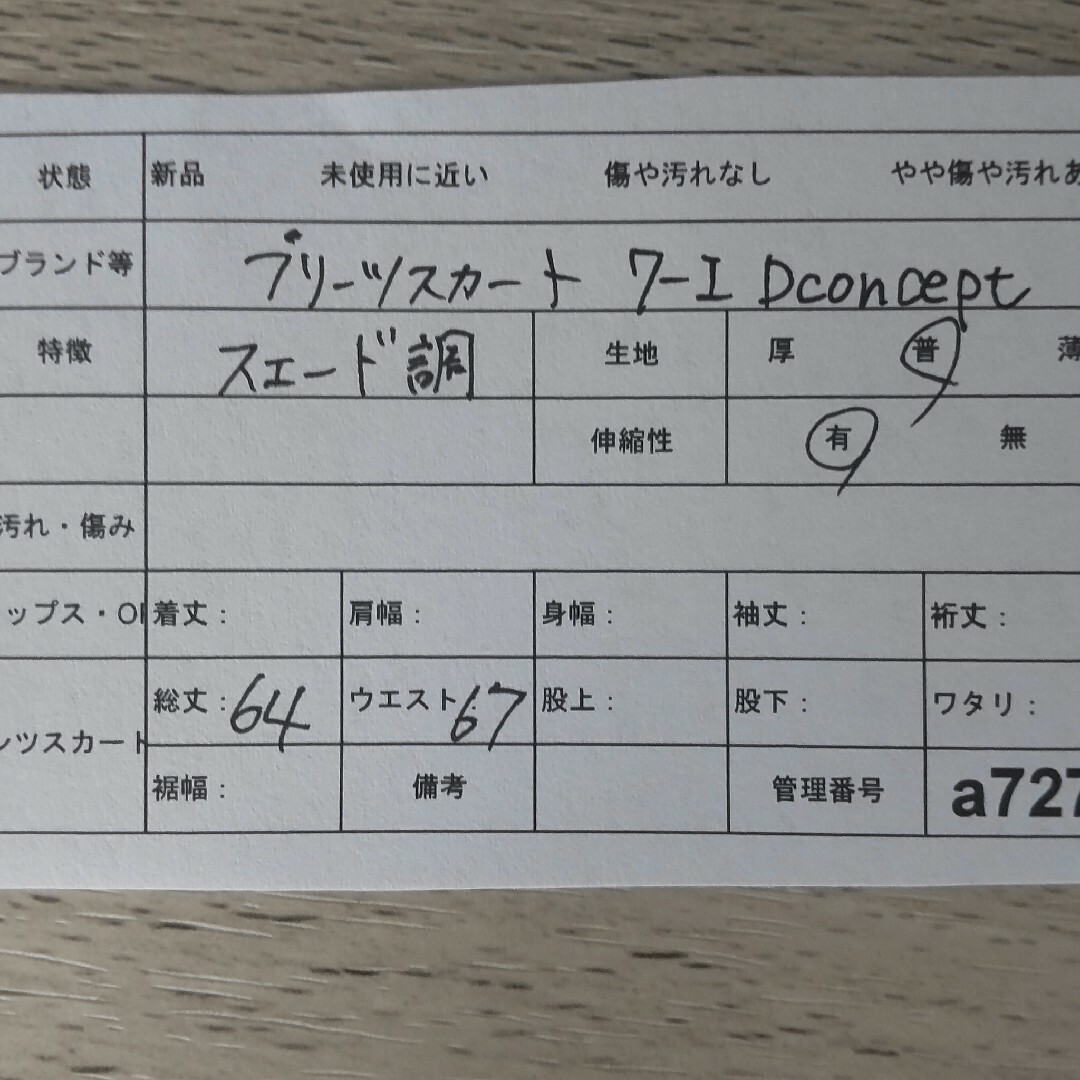 状態 新品 未使用に近い 傷や汚れなし やや傷や汚れあ
ブランド等 プリーツスカート 7-I Dconcept
特徴 スエード調 生地 厚 普 薄
伸縮性 有 無
汚れ・傷み
ップス・OP 着丈： 肩幅： 身幅： 袖丈： 裄丈：
総丈：64 ウエスト67 股上： 股下： ワタリ：
ンツスカート
裾幅： 備考 管理番号 a727